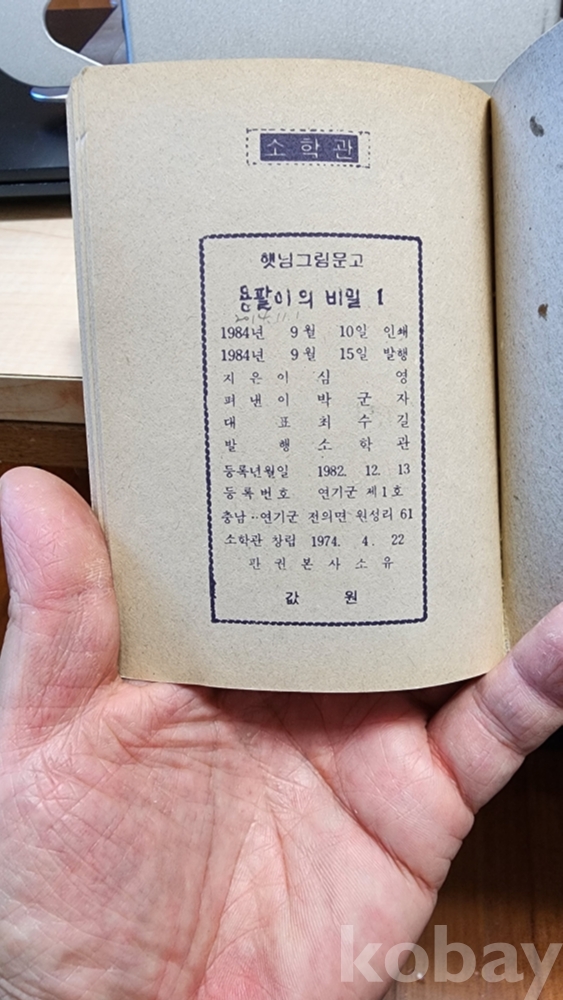 소학관
햇님그림문고
용팔이의 비밀 1
2014.11.1
1984년 9월 10일 인쇄
1984년 9월 15일 발행
지은이 심 영
펴낸이 박군자
대표 최수길
발행 소학관
등록년월일 1982. 12. 13
등록번호 연기군 제1호
충남··연기군 전의면 원성리 61
소학관 창립 1974. 4. 22
판권본사소유
값 원
kobay